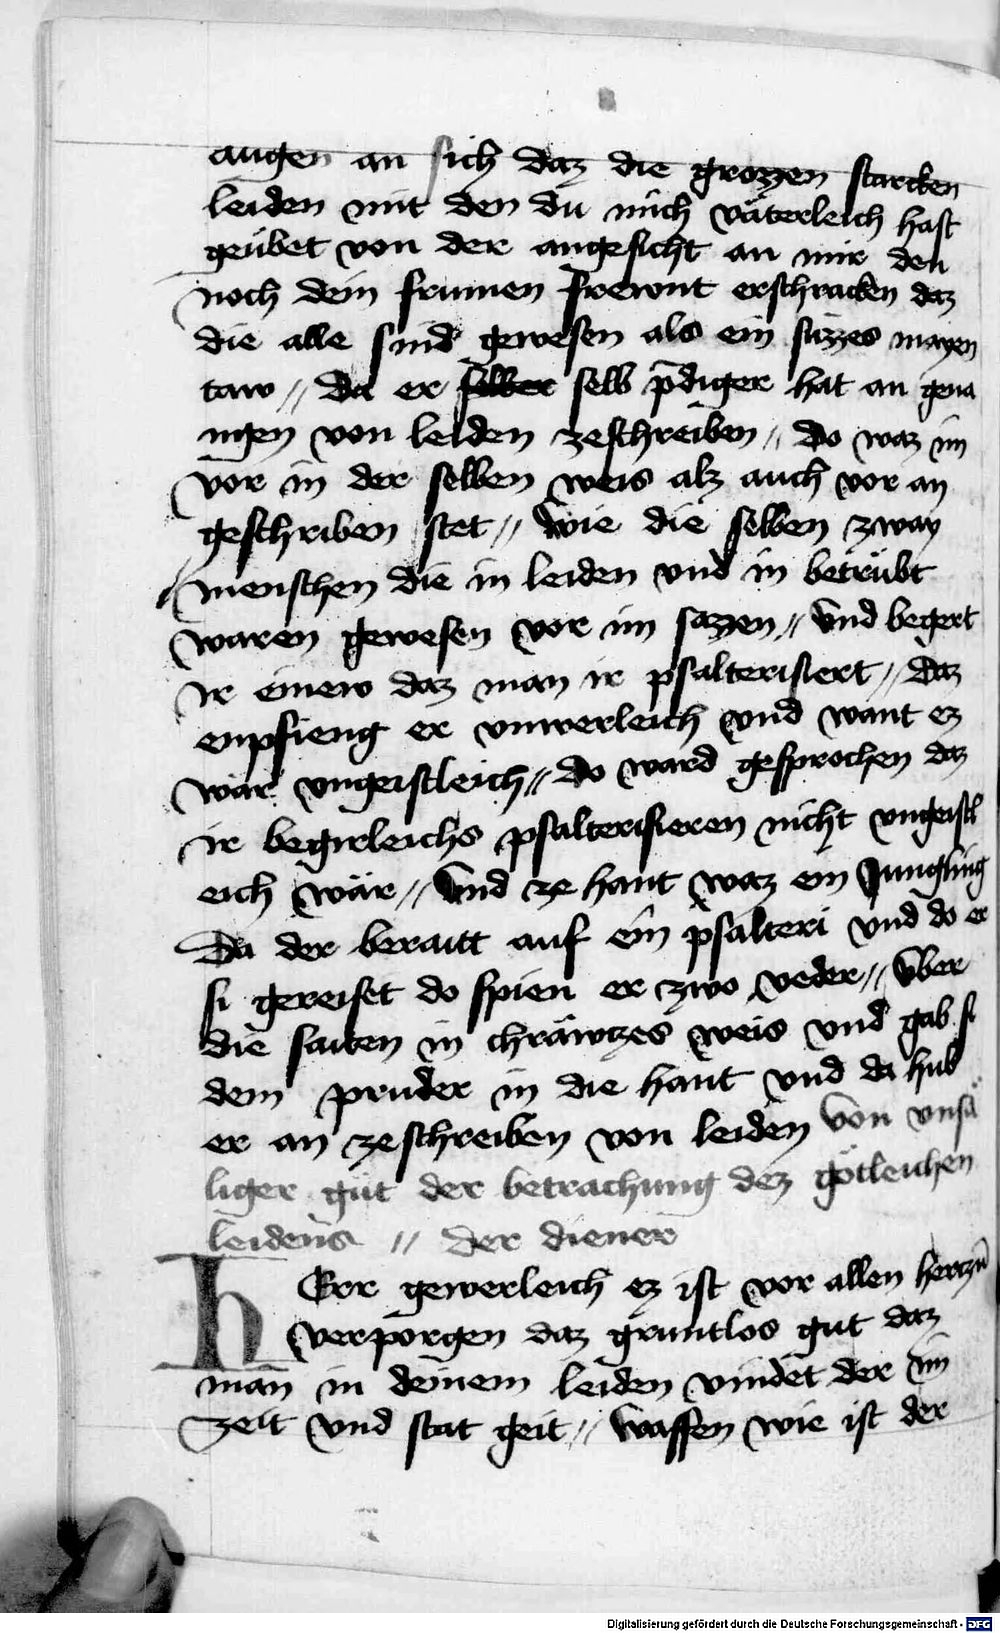 augen an sich daz die grozzen starcken
leiden mit den du mich väterleich hast
geübet von der angesicht an mir den
noch dein frumen frewnt erschracken daz
die alle sind gewesen als ein süzzes mayen
taw // Da er selber selb p̄diger hat an gena
mgen von leiden zeschreiben // do waz im
vor in der selben weis alz auch vor an
geschriben stet // Wie die selben zway
menschen die in leiden vnd in betrübt
waren gewesen vor im sazzen // Vnd begert
ir einew daz man ir psalterisiert // daz
enpfieng er vnwerleich vnd want ez
wär vngeistleich // do ward gesprochen daz
ir begirleichs psalterisieren nicht vngeistl
eich wär // Vnd ze hant waz ein Jungling
Da der beraitt auf ein psalteri vnd do er
si gereiset do spien er zwo veder // Vber
die saiten in chräwtzes weis vnd gab si
dem pruder in die hant vnd da hub
er an zeschreiben von leiden von vnsä
liger güt der betrachung dez götleichen
leidens // der diener
HErr gewerleich ez ist vor allen hertzn̄
verporgen daz gruntlos gut daz
man in deinem leiden vindet der im
zeit vnd stat geit // waffen wie ist der
Digitalisierung gefördert durch die Deutsche Forschungsgemeinschaft - DFG